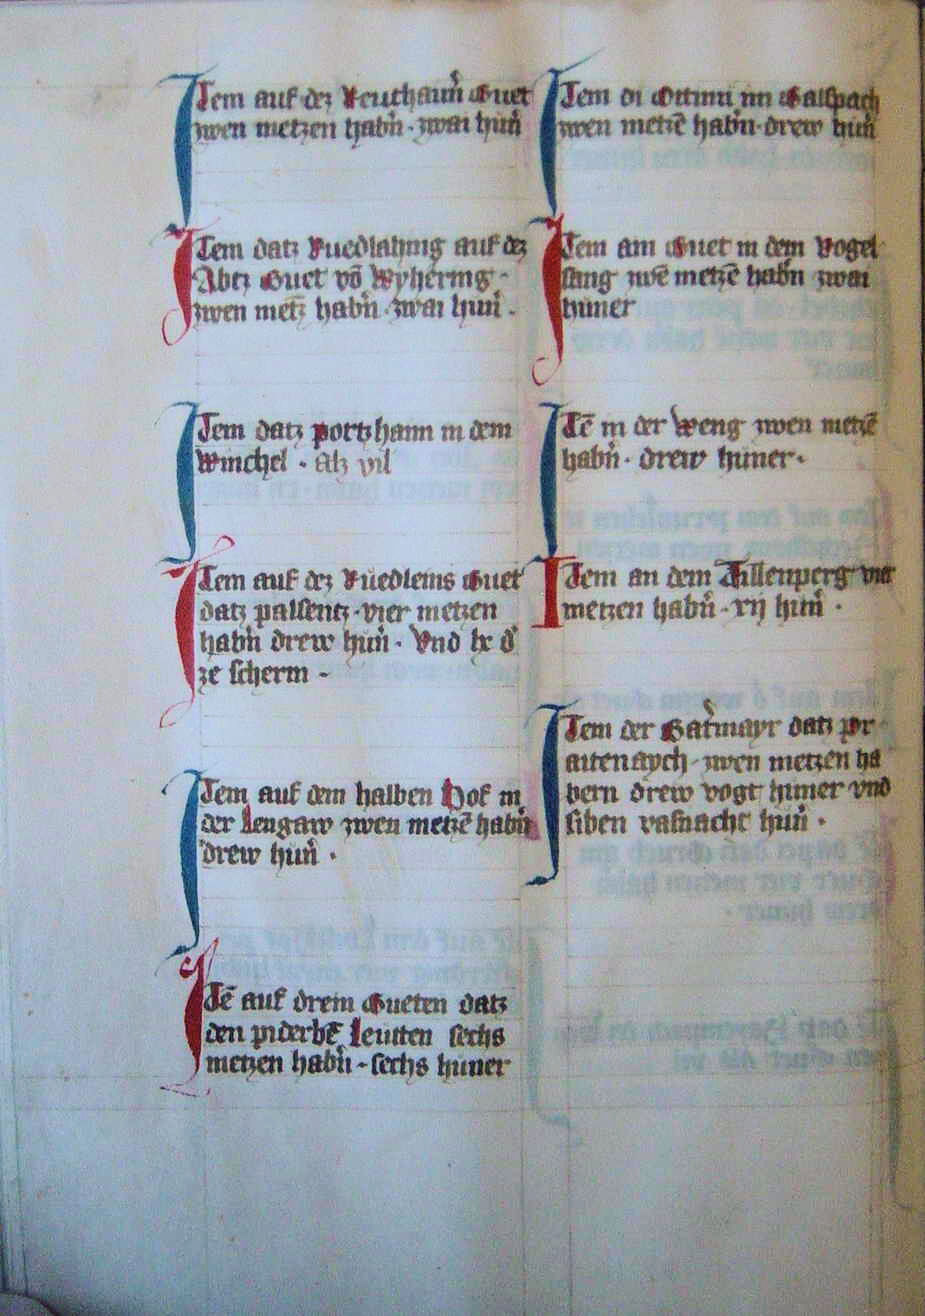 Item auf dez Reuthaim̄ Guet
zwen metzen habn̄ · zwai hūn̄
Item datz Ruedlahing auf dez
Abtz Guet vō Wyhering ·
zwen metz̄ habn̄ · zwai hun̄ ·
Item datz portzhaim in dem
winchel · alz vil
Item auf dez Ruedleins Guet
datz palsentz · vier metzen
habn̄ drew hūn̄ · Vnd lx d̄
ze scherm ·
Item auf dem halben Hof in
der Lengaw zwen metzē habn̄
drew hun̄ ·
Itē auf drein Gueten datz
den piderbē Leutten sechs
metzen habn̄ · sechs huner
Item di Ottinn im Galspach
zwen metzē habn̄ · drew hūn̄
Item am Guet in dem Vogel
sang zwē metzē habn̄ zwai
huner
Itē in der Weng zwen metzē
habn̄ · drew huner ·
Item an dem Tillenperg vier
metzen habn̄ · xij hūn̄ ·
Item der Gat̄mayr datz pr
aitenaych · zwen metzen ha
bern drew vogt huner vnd
siben vasnacht hun̄ ·